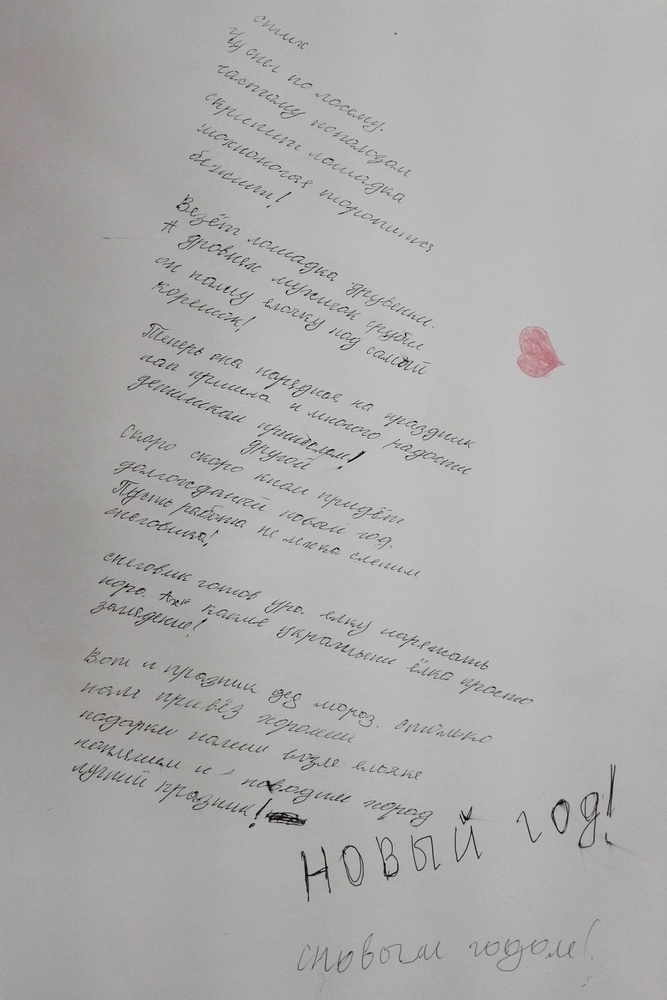 стих
Чу снег по лосему.
частому пополозам
скрипит лошадка
мохноногая торопится
бежит!
Везёт лошадка друвенки.
А дровнях мужичок срубил
он нашу елочку под самый
корешок!
Теперь она нарядная, на праздник
нап пришла и многого радости
детишкам принеслом!
другой
Скоро скоро кнам придёт
долгожданый новый год.
Пусть работа не легко слепим
снеговика!
снеговик готов ура елку наряжать
пора. Ах какие украшьени ёлка просто
заглядение!
Вот и празник дед мороз. столько
нам привёз хорошие
подарки нашли возле елочке
попляшем и поводим хоровод
лучший празник!
НОВЫЙ ГОД!
сновым годом!